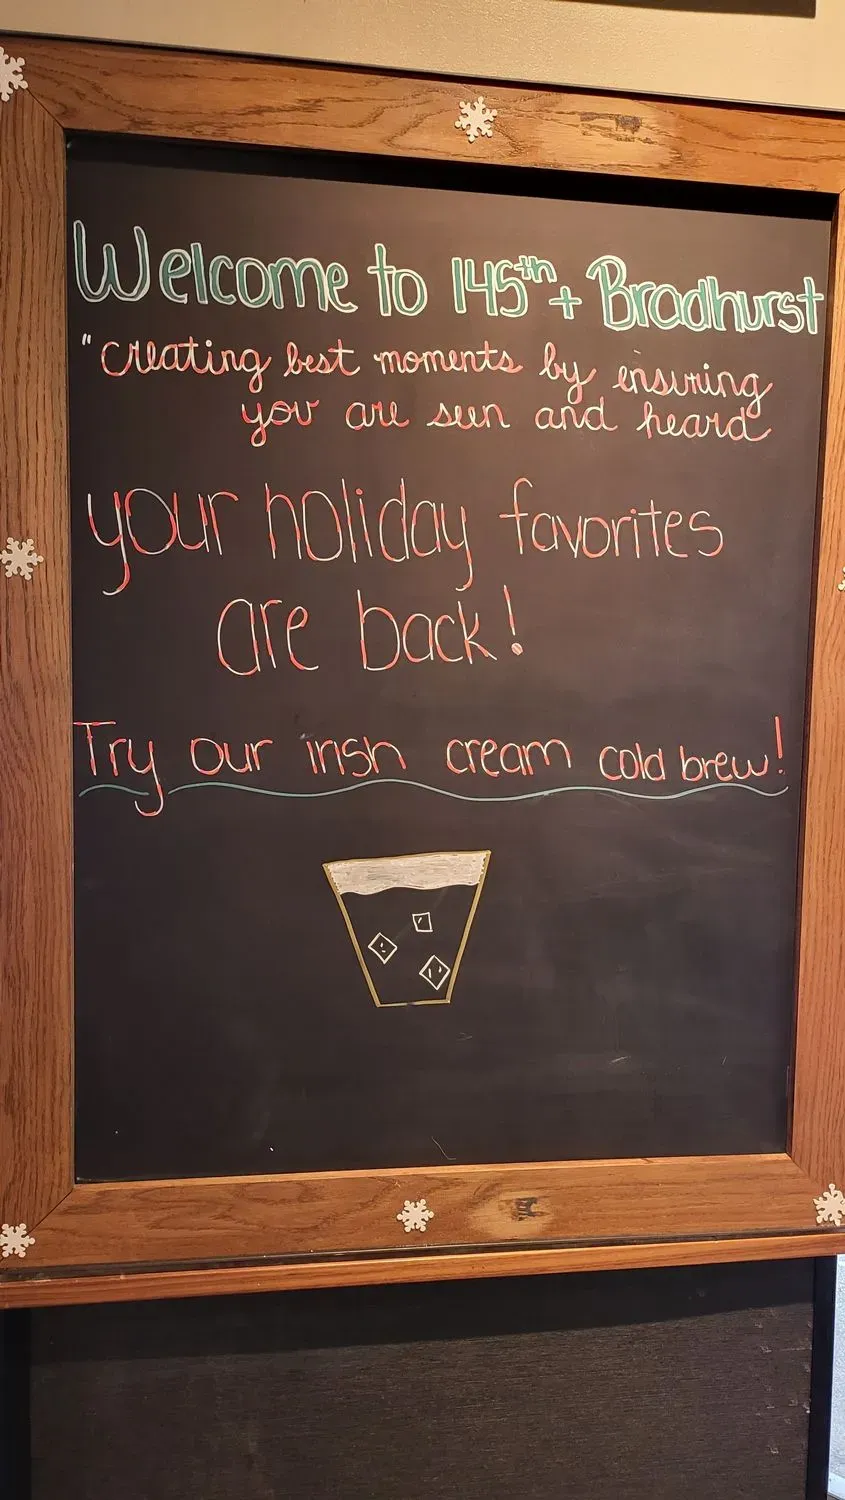 Welcome to 145th + Bradhurst
"creating best moments by ensuring
you are seen and heard
your holiday favorites
are back!
Try our irish cream cold brew!